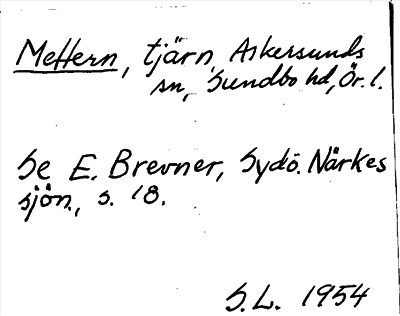 Mettern, tjärn, Askersunds
sn, Sundbo hd, Ör. l.
Se E. Brevner, Sydö. Närkes
sjön., s. 18.
S.L. 1954